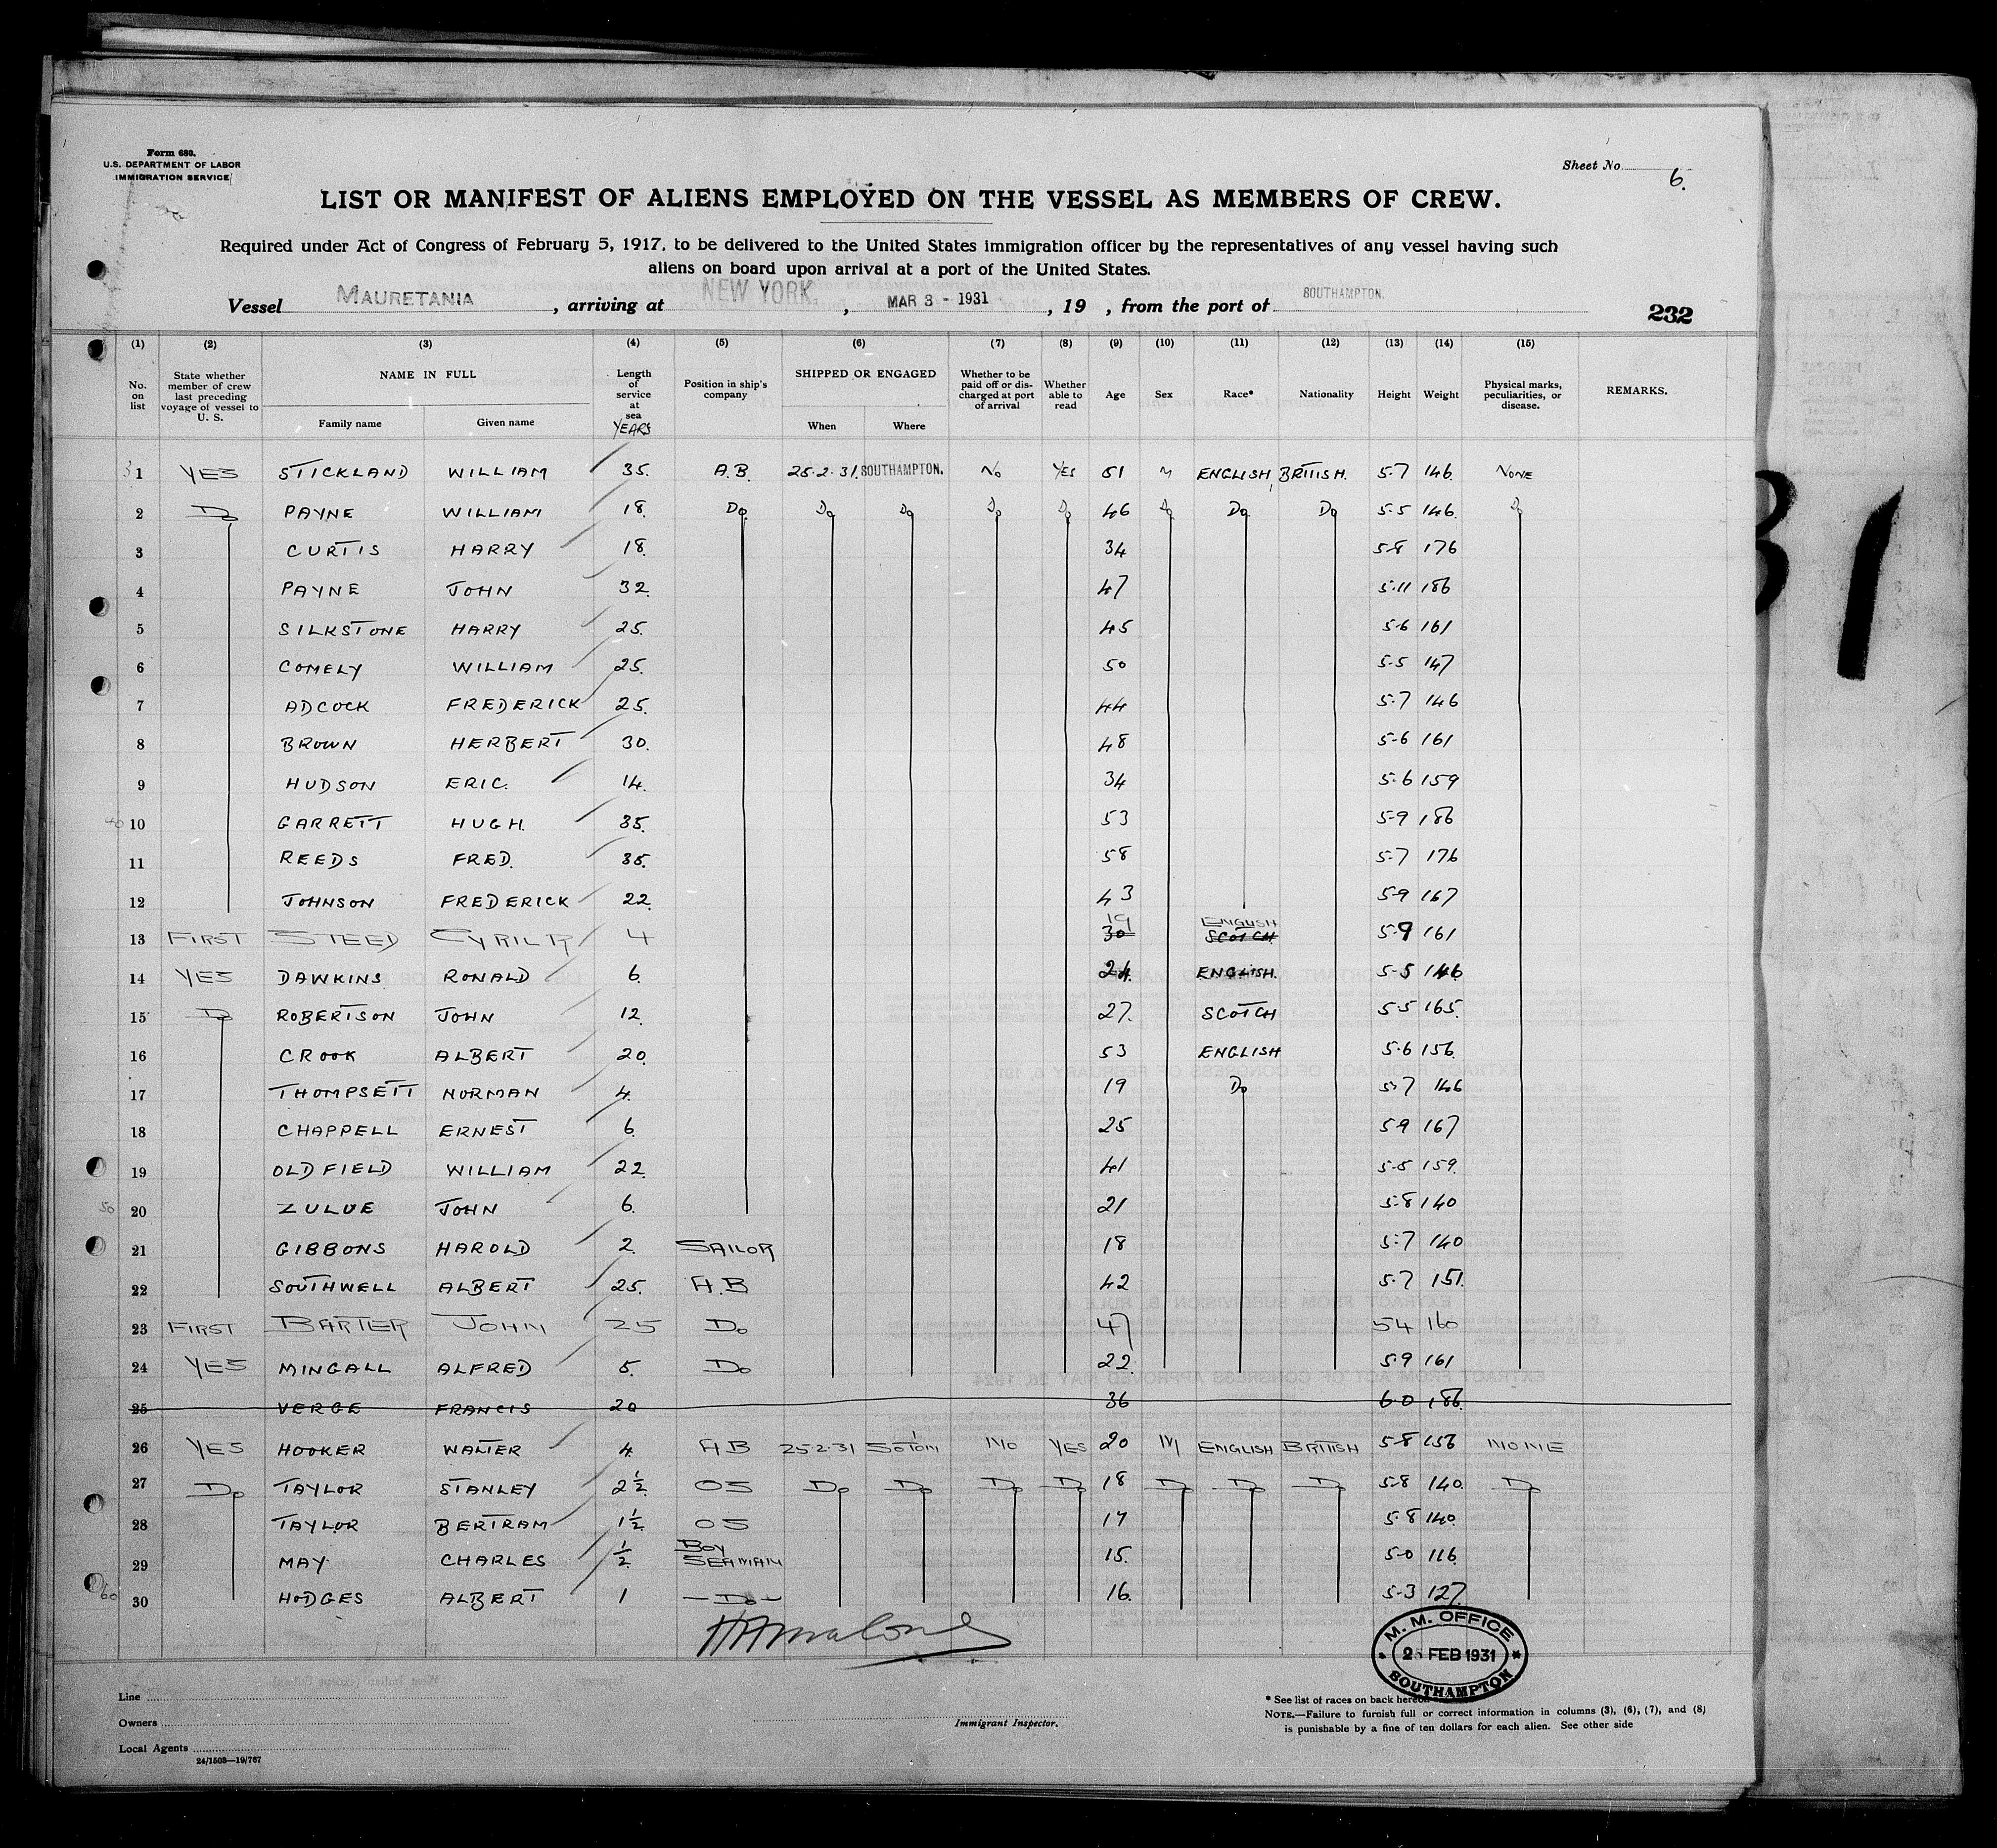 Form 680.
U.S. DEPARTMENT OF LABOR
IMMIGRATION SERVICE
Sheet No. 6.
LIST OR MANIFEST OF ALIENS EMPLOYED ON THE VESSEL AS MEMBERS OF CREW.
Required under Act of Congress of February 5, 1917, to be delivered to the United States immigration officer by the representatives of any vessel having such
aliens on board upon arrival at a port of the United States.
Vessel MAURETANIA, arriving at NEW YORK, MAR 3 - 1931, 19 , from the port of SOUTHAMPTON.
232
(1) (2) (3) (4) (5) (6) (7) (8) (9) (10) (11) (12) (13) (14) (15)
No. on list State whether member of crew last preceding voyage of vessel to U. S. NAME IN FULL Family name Given name Length of service at sea YEARS Position in ship's company SHIPPED OR ENGAGED When Where Whether to be paid off or discharged at port of arrival Whether able to read Age Sex Race* Nationality Height Weight Physical marks, peculiarities, or disease. REMARKS.
1 YES STICKLAND WILLIAM 35. A.B. 25.2.31. SOUTHAMPTON. NO YES 51 M ENGLISH BRITISH. 5.7 146. NONE
2 Do PAYNE WILLIAM 18. Do Do Do Do Do 46 Do Do Do 5.5 146. Do
3 CURTIS HARRY 18. 34 5.8 176
4 PAYNE JOHN 32. 47 5.11 186
5 SILKSTONE HARRY 25. 45 5.6 161
6 COMELY WILLIAM 25. 50 5.5 147
7 ADCOCK FREDERICK 25. 44 5.7 146
8 BROWN HERBERT 30. 48 5.6 161
9 HUDSON ERIC. 14. 34 5.6 159
10 GARRETT HUGH. 35. 53 5.9 186
11 REEDS FRED. 35. 58 5.7 176
12 JOHNSON FREDERICK 22. 43 5.9 167
13 FIRST STEED CYRIL R 4 19 30 ENGLISH SCOTCH 5.9 161
14 YES DAWKINS RONALD 6. 24. ENGLISH. 5.5 146
15 Do ROBERTSON JOHN 12. 27. SCOTCH 5.5 165.
16 CROOK ALBERT 20. 53 ENGLISH 5.6 156.
17 THOMPSETT NORMAN 4. 19 Do 5.7 146
18 CHAPPELL ERNEST 6. 25 5.9 167
19 OLDFIELD WILLIAM 22. 41 5.5 159.
20 ZULUE JOHN 6. 21 5.8 140
21 GIBBONS HAROLD 2. SAILOR 18 5.7 140
22 SOUTHWELL ALBERT 25. A.B 42 5.7 151.
23 FIRST BARTER JOHN 25 Do 47 5 4 160
24 YES MINGALL ALFRED 5. Do 22. 5.9 161
25 VERGE FRANCIS 20 36 6.0 186.
26 YES HOOKER WALTER 4. AB 25.2.31 SOTON NO YES 20 M ENGLISH BRITISH 5.8 156 NONE
27 Do TAYLOR STANLEY 2½ OS Do Do Do Do 18 Do Do Do 5.8 140. Do
28 TAYLOR BERTRAM 1½ OS 17 5.8 140.
29 MAY CHARLES ½ BOY SEAMAN 15. 5.0 116.
30 HODGES ALBERT 1 Do 16. 5.3 127.
M. M. OFFICE
FEB 1931
SOUTHAMPTON
Line
Owners
Local Agents
24/1503—19/767
Immigrant Inspector.
* See list of races on back hereof
NOTE.—Failure to furnish full or correct information in columns (3), (6), (7), and (8)
is punishable by a fine of ten dollars for each alien. See other side